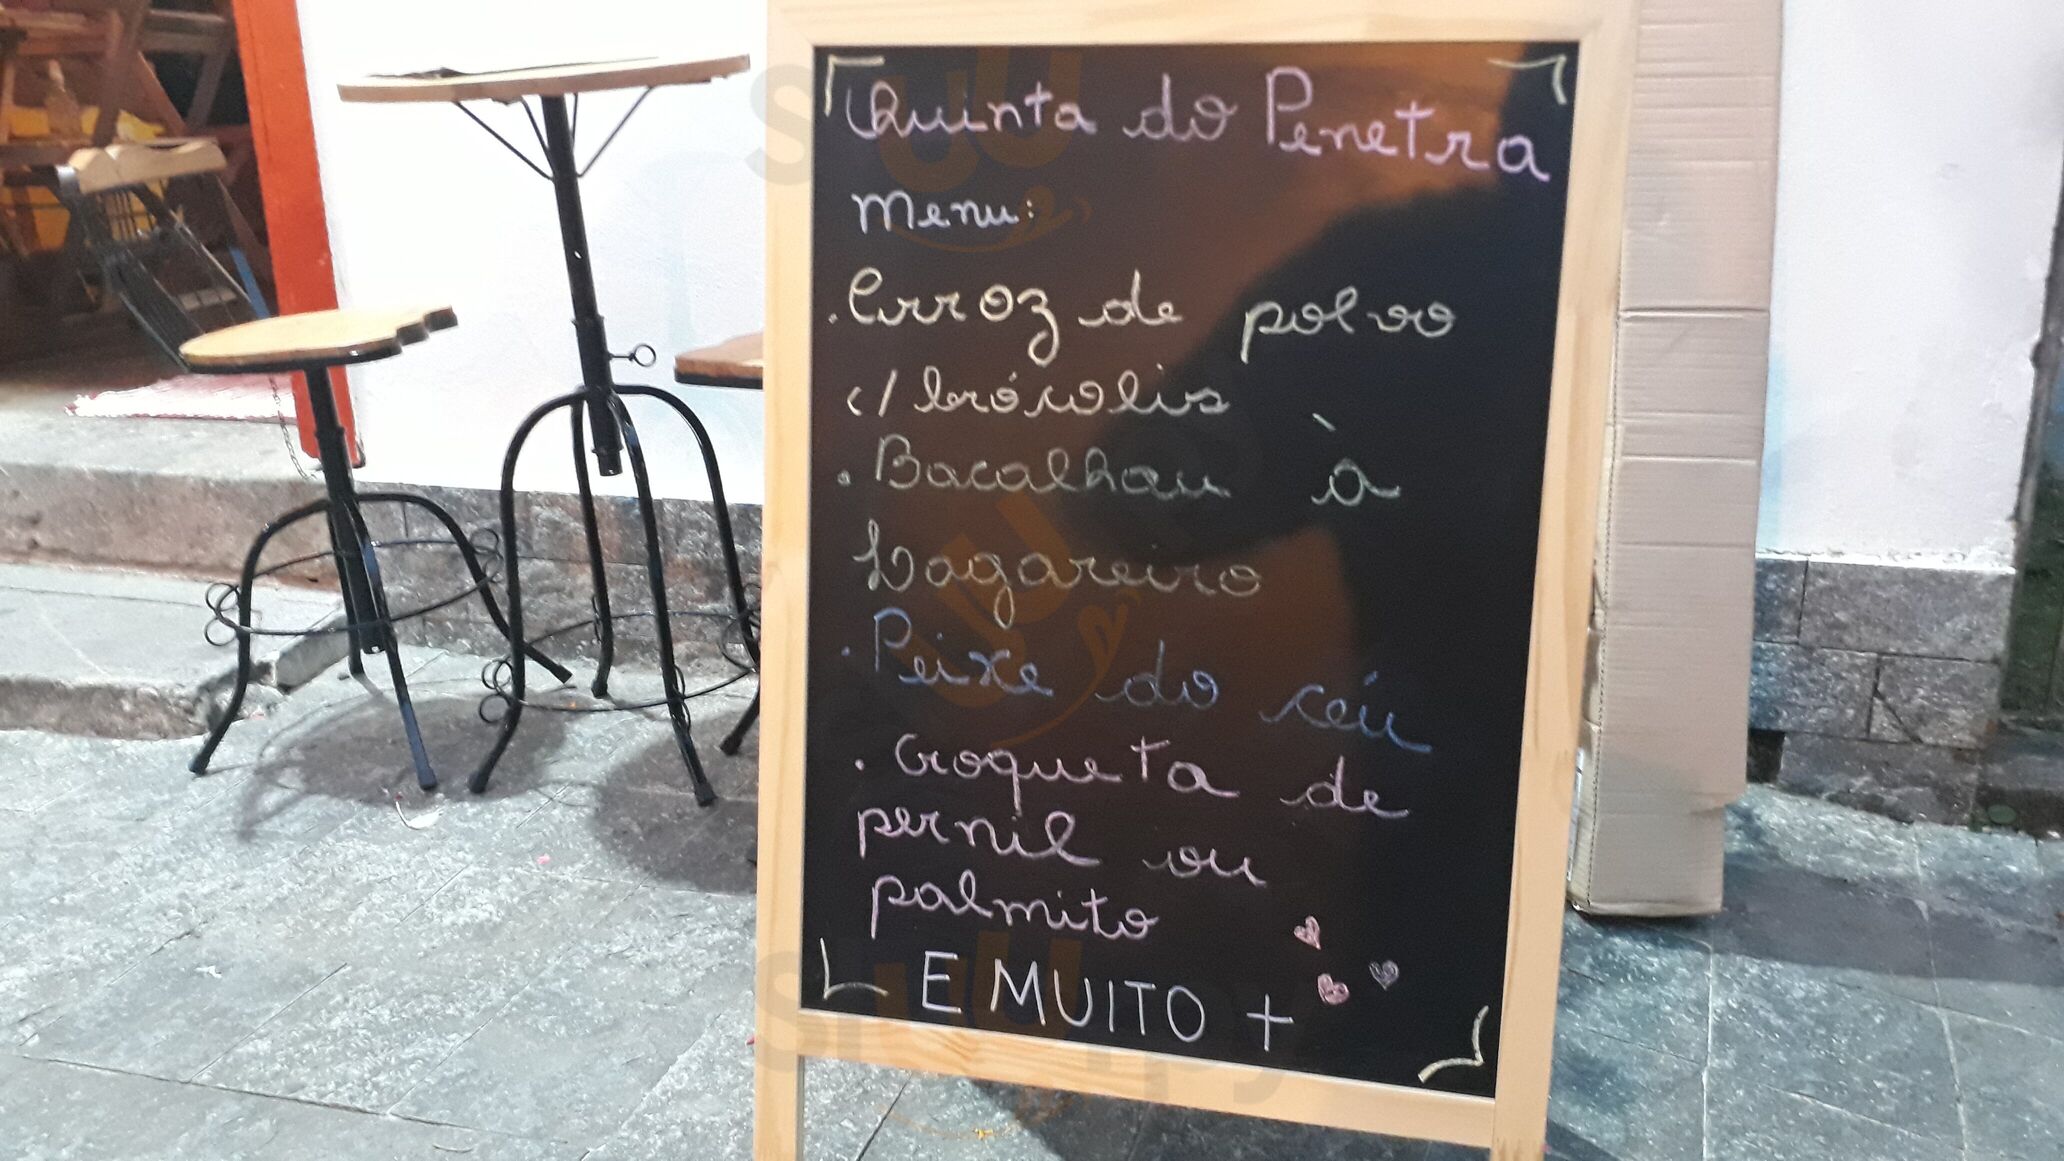 Quinta do Penetra
Menu:
. Arroz de polvo
c/ brócolis
. Bacalhau à
Lagareiro
. Peixe do céu
. Croqueta de
pernil ou
palmito
E MUITO +